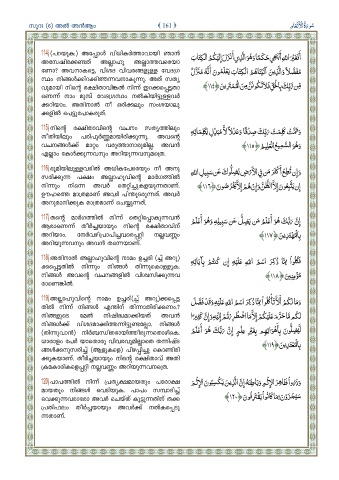 സൂറ: (6) അൽ അൻആം
{ 161 }
سُورَةُ الأَنْعَام
114) (പറയുക:) അപ്പോൾ വിധികർത്താവായി ഞാൻ
അന്വേഷിക്കേണ്ടത് അല്ലാഹു അല്ലാത്തവരെയാ
ണോ? അവനാകട്ടെ, വിശദ വിവരങ്ങളുള്ള വേദഗ്ര
ന്ഥം നിങ്ങൾക്കിറക്കിത്തന്നവനാകുന്നു. അത് സത്യ
വുമായി നിന്റെ രക്ഷിതാവിങ്കൽ നിന്ന് ഇറക്കപ്പെട്ടതാ
ണെന്ന് നാം മുമ്പ് വേദഗ്രന്ഥം നൽകിയിട്ടുള്ളവർ
ക്കറിയാം. അതിനാൽ നീ ഒരിക്കലും സംശയാലു
ക്കളിൽ പെട്ടുപോകരുത്.
أَفَغَيْرَ اللَّهِ أَبْتَغِي حَكَمًا وَهُوَ الَّذِي أَنْزَلَ إِلَيْكُمُ الْكِتَابَ
مُفَصَّلًا وَالَّذِينَ آتَيْنَاهُمُ الْكِتَابَ يَعْلَمُونَ أَنَّهُ مُنَزَّلٌ
مِنْ رَبِّكَ بِالْحَقِّ فَلَا تَكُونَنَّ مِنَ الْمُمْتَرِينَ ﴿١١٤﴾
115) നിന്റെ രക്ഷിതാവിന്റെ വചനം സത്യത്തിലും
നീതിയിലും പരിപൂർണ്ണമായിരിക്കുന്നു. അവന്റെ
വചനങ്ങൾക്ക് മാറ്റം വരുത്താനാരുമില്ല. അവൻ
എല്ലാം കേൾക്കുന്നവനും അറിയുന്നവനുമത്രെ.
وَتَمَّتْ كَلِمَتُ رَبِّكَ صِدْقًا وَعَدْلًا لَا مُبَدِّلَ لِكَلِمَاتِهِ
وَهُوَ السَّمِيعُ الْعَلِيمُ ﴿١١٥﴾
116) ഭൂമിയിലുള്ളവരിൽ അധികപേരെയും നീ അനു
സരിക്കുന്ന പക്ഷം അല്ലാഹുവിന്റെ മാർഗത്തിൽ
നിന്നും നിന്നെ അവർ തെറ്റിച്ചുകളയുന്നതാണ്.
ഊഹത്തെ മാത്രമാണ് അവർ പിന്തുടരുന്നത്. അവർ
അനുമാനിക്കുക മാത്രമാണ് ചെയ്യുന്നത്.
وَإِنْ تُطِعْ أَكْثَرَ مَنْ فِي الْأَرْضِ يُضِلُّوكَ عَنْ سَبِيلِ اللَّهِ
إِنْ يَتَّبِعُونَ إِلَّا الظَّنَّ وَإِنْ هُمْ إِلَّا يَخْرُصُونَ ﴿١١٦﴾
117) തന്റെ മാർഗത്തിൽ നിന്ന് തെറ്റിപ്പോകുന്നവൻ
ആരാണെന്ന് തീർച്ചയായും നിന്റെ രക്ഷിതാവിന്
അറിയാം. നേർവഴിപ്രാപിച്ചവരെപ്പറ്റി നല്ലവണ്ണം
അറിയുന്നവനും അവൻ തന്നെയാണ്.
إِنَّ رَبَّكَ هُوَ أَعْلَمُ مَنْ يَضِلُّ عَنْ سَبِيلِهِ وَهُوَ أَعْلَمُ
بِالْمُهْتَدِينَ ﴿١١٧﴾
118) അതിനാൽ അല്ലാഹുവിന്റെ നാമം ഉച്ചരി (ച്ച് അറു)
ക്കപ്പെട്ടതിൽ നിന്നും നിങ്ങൾ തിന്നുകൊള്ളുക.
നിങ്ങൾ അവന്റെ വചനങ്ങളിൽ വിശ്വസിക്കുന്നവ
രാണെങ്കിൽ.
فَكُلُوا مِمَّا ذُكِرَ اسْمُ اللَّهِ عَلَيْهِ إِنْ كُنْتُمْ بِآيَاتِهِ
مُؤْمِنِينَ ﴿١١٨﴾
119) അല്ലാഹുവിന്റെ നാമം ഉച്ചരി(ച്ച് അറു)ക്കപ്പെട്ട
തിൽ നിന്ന് നിങ്ങൾ എന്തിന് തിന്നാതിരിക്കണം?
നിങ്ങളുടെ മേൽ നിഷിദ്ധമാക്കിയത് അവൻ
നിങ്ങൾക്ക് വിശദമാക്കിത്തന്നിട്ടുണ്ടല്ലോ. നിങ്ങൾ
(തിന്നുവാൻ) നിർബന്ധിതരായിത്തീരുന്നതൊഴികെ.
ധാരാളം പേർ യാതൊരു വിവരവുമില്ലാതെ തന്നിഷ്ട
ങ്ങൾക്കനുസരിച്ച് (ആളുകളെ) പിഴപ്പിച്ചു കൊണ്ടിരി
ക്കുകയാണ്. തീർച്ചയായും നിന്റെ രക്ഷിതാവ് അതി
ക്രമകാരികളെപ്പറ്റി നല്ലവണ്ണം അറിയുന്നവനത്രെ.
وَمَا لَكُمْ أَلَّا تَأْكُلُوا مِمَّا ذُكِرَ اسْمُ اللَّهِ عَلَيْهِ وَقَدْ فَصَّلَ
لَكُمْ مَا حَرَّمَ عَلَيْكُمْ إِلَّا مَا اضْطُرِرْتُمْ إِلَيْهِ وَإِنَّ كَثِيرًا
لَيُضِلُّونَ بِأَهْوَائِهِمْ بِغَيْرِ عِلْمٍ إِنَّ رَبَّكَ هُوَ أَعْلَمُ
بِالْمُعْتَدِينَ ﴿١١٩﴾
120) പാപത്തിൽ നിന്ന് പ്രത്യക്ഷമായതും പരോക്ഷ
മായതും നിങ്ങൾ വെടിയുക. പാപം സമ്പാദിച്ച്
വെക്കുന്നവരാരോ അവർ ചെയ്ത് കൂട്ടുന്നതിന് തക്ക
പ്രതിഫലം തീർച്ചയായും അവർക്ക് നൽകപ്പെടു
ന്നതാണ്.
وَذَرُوا ظَاهِرَ الْإِثْمِ وَبَاطِنَهُ إِنَّ الَّذِينَ يَكْسِبُونَ الْإِثْمَ
سَيُجْزَوْنَ بِمَا كَانُوا يَقْتَرِفُونَ ﴿١٢٠﴾